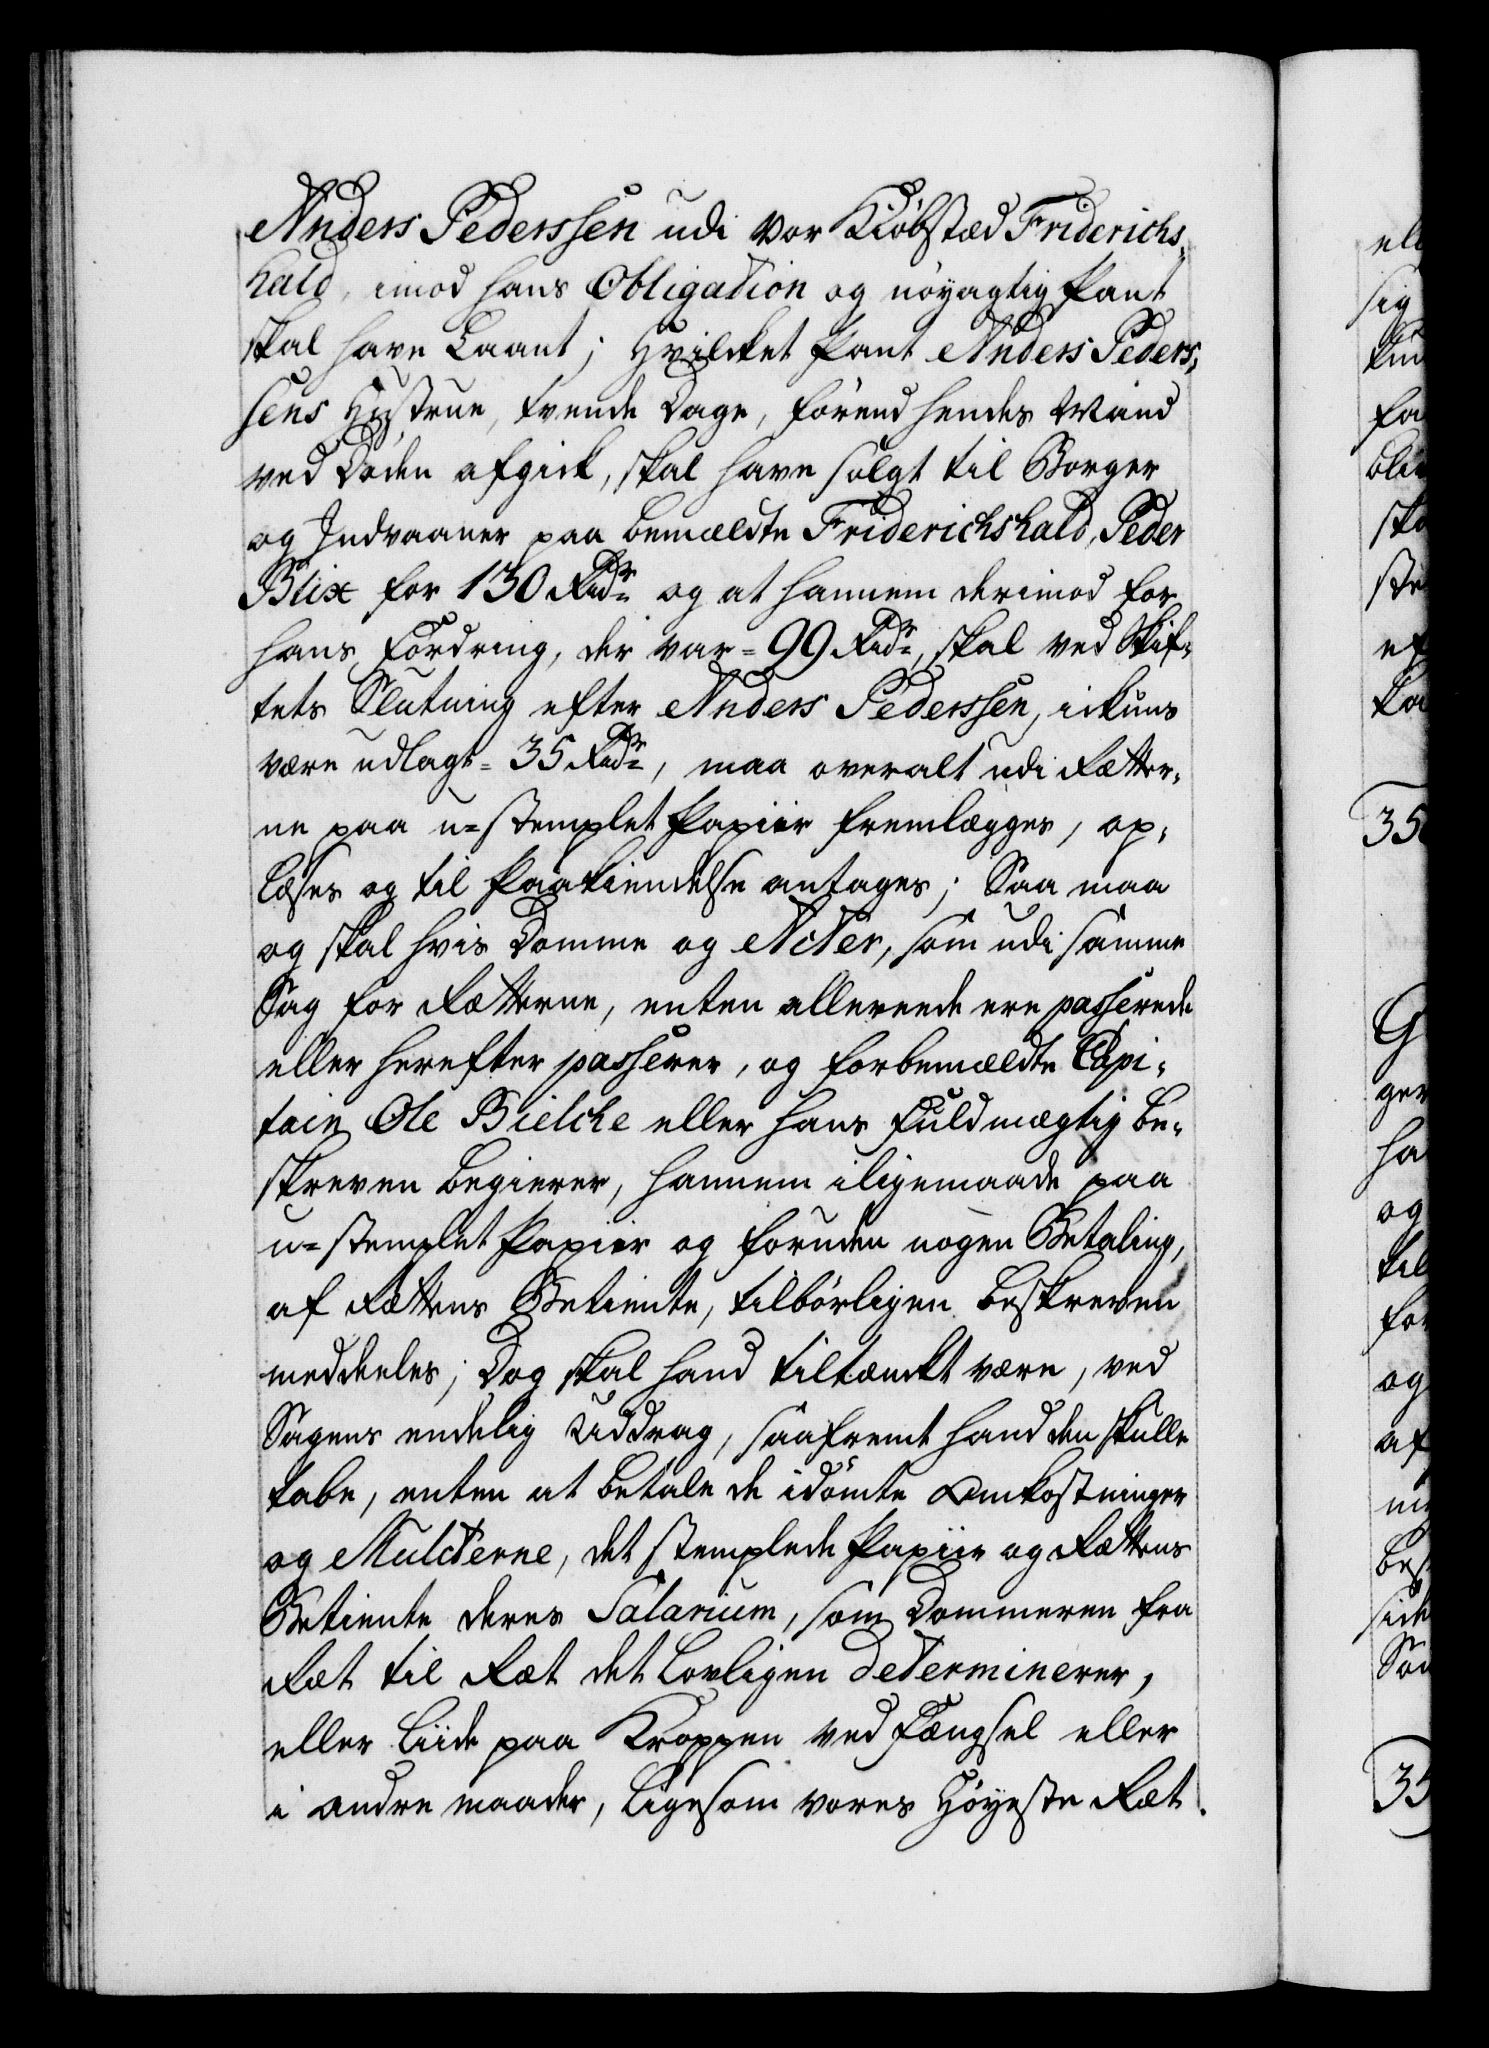 Anders Pederssen udi Vor Kiøbstæd Friderichs-
hald, imod hans Obligation og nøyagtig Pant
skal have Laant; Hvilcket Pant Anders Peders-
sens Hustrue, tvende Dage, førend hendes Mand
ved Døden afgick, skal have solgt til Borger
og Indvaaner paa bemældte Friderichshald, Peder
Blix for 130 Rdr og at hannem derimod for
hans Fordring, der var = 99 Rdr, skal ved Skif-
tets Slutning efter Anders Pederssen, ickuns
være udlagt = 35 Rdr, maa overalt udi Rætter-
ne paa u-stemplet Papiir fremlægges, op-
læses og til Paakiendelse antages; Saa maa
og skal hvis Domme og Acter, som udi samme
Sag for Rætterne, enten allereede ere passerede
eller herefter passerer, og forbemældte Capi-
tain Ole Bielcke eller hans Fuldmægtig be-
skreven begierer, hannem iligemaade paa
u-stemplet Papiir og foruden nogen Betaling,
af Rættens Betiente, tilbørligen beskreven
meddeeles; Dog skal hand tiltænckt være, ved
Sagens endelig Uddrag, saafremt hand den skulle
tabe, enten at betale de idømte Omkostninger
og Mulcterne, det stemplede Papiir og Rættens
Betiente deres Salarium, som Dommeren fra
Ræt til Ræt det Lovligen determinerer,
eller Liide paa Kroppen ved Fængsel eller
i andre maader, Ligesom vores Høyeste Ræt